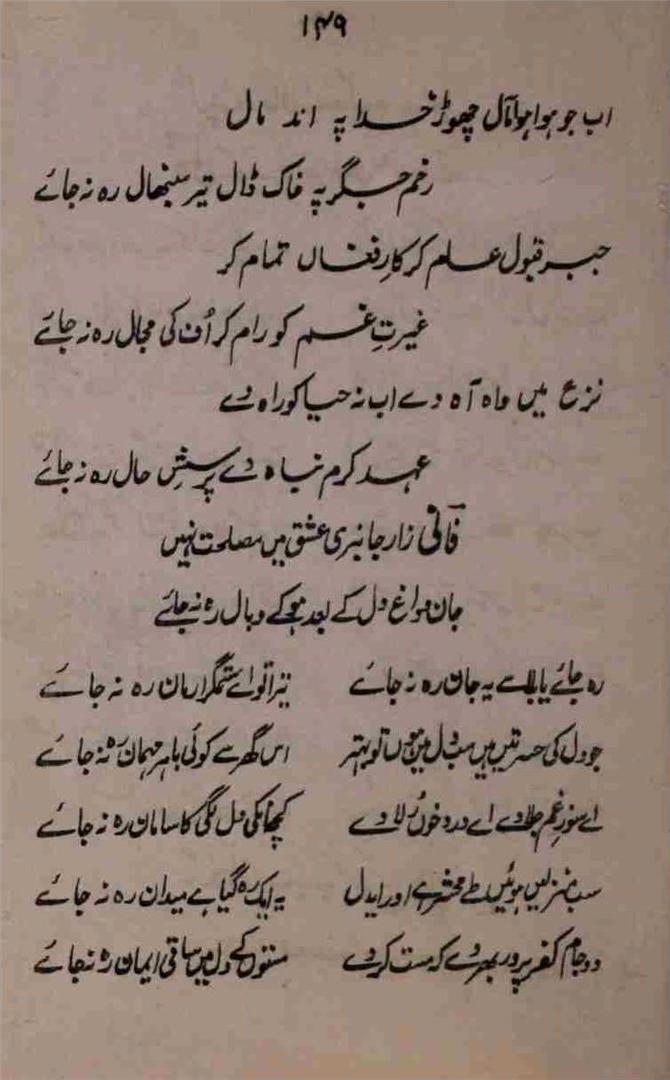 ۱۴۹
اب جو ہوا ہو مآل چھوڑ خدا پہ اند مال
زخم جگر پہ خاک ڈال تیر سنبھال رہ نہ جائے
جبر قبول عام کر کارِ فغاں تمام کر
غیرتِ غم کو رام کر اُف کی مجال رہ نہ جائے
نزع میں واہ آہ دے اب نہ حیا کو راہ دے
عہد کرم نباہ دے پرسشِ حال رہ نہ جائے
فانی زار جانبری عشق میں مصلحت نہیں
جان ہو داغ دل کے بعد ہو کے وبال رہ نہ جائے
رہ جائے یا بلا سے یہ جان رہ نہ جائے تیرا تو اے ستمگر ارمان رہ نہ جائے
جو دل کی حسرتیں ہیں سب دل میں ہوں تو بہتر اس گھر سے کوئی باہر مہمان رہ نہ جائے
اے سوز غم جلا دے اے درد خوں رلا دے کچھ انکی دل لگی کا سامان رہ نہ جائے
سب منزلیں ہوئیں طے محشر ہے اور اے دل یہ ایک رہ گیا ہے میدان رہ نہ جائے
دو جام کفر پرور بھر دے کہ مست کر دے مستوں کے دل میں ساقی ایمان رہ نہ جائے